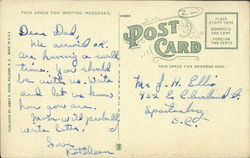 THIS SPACE FOR WRITING MESSAGES.
POST CARD
PLACE STAMP HERE
DOMESTIC ONE CENT
FOREIGN TWO CENTS
THIS SPACE FOR ADDRESS ONLY.
Dear Dad,
We arrived O.K.
are having a swell
time. You should
be with us. Write
and let us know
how you are.
Mom will probably
write later.
Love
Kathleen
Mr J. H. Ellis
E. Cleveland St
Spartanburg
S.C.